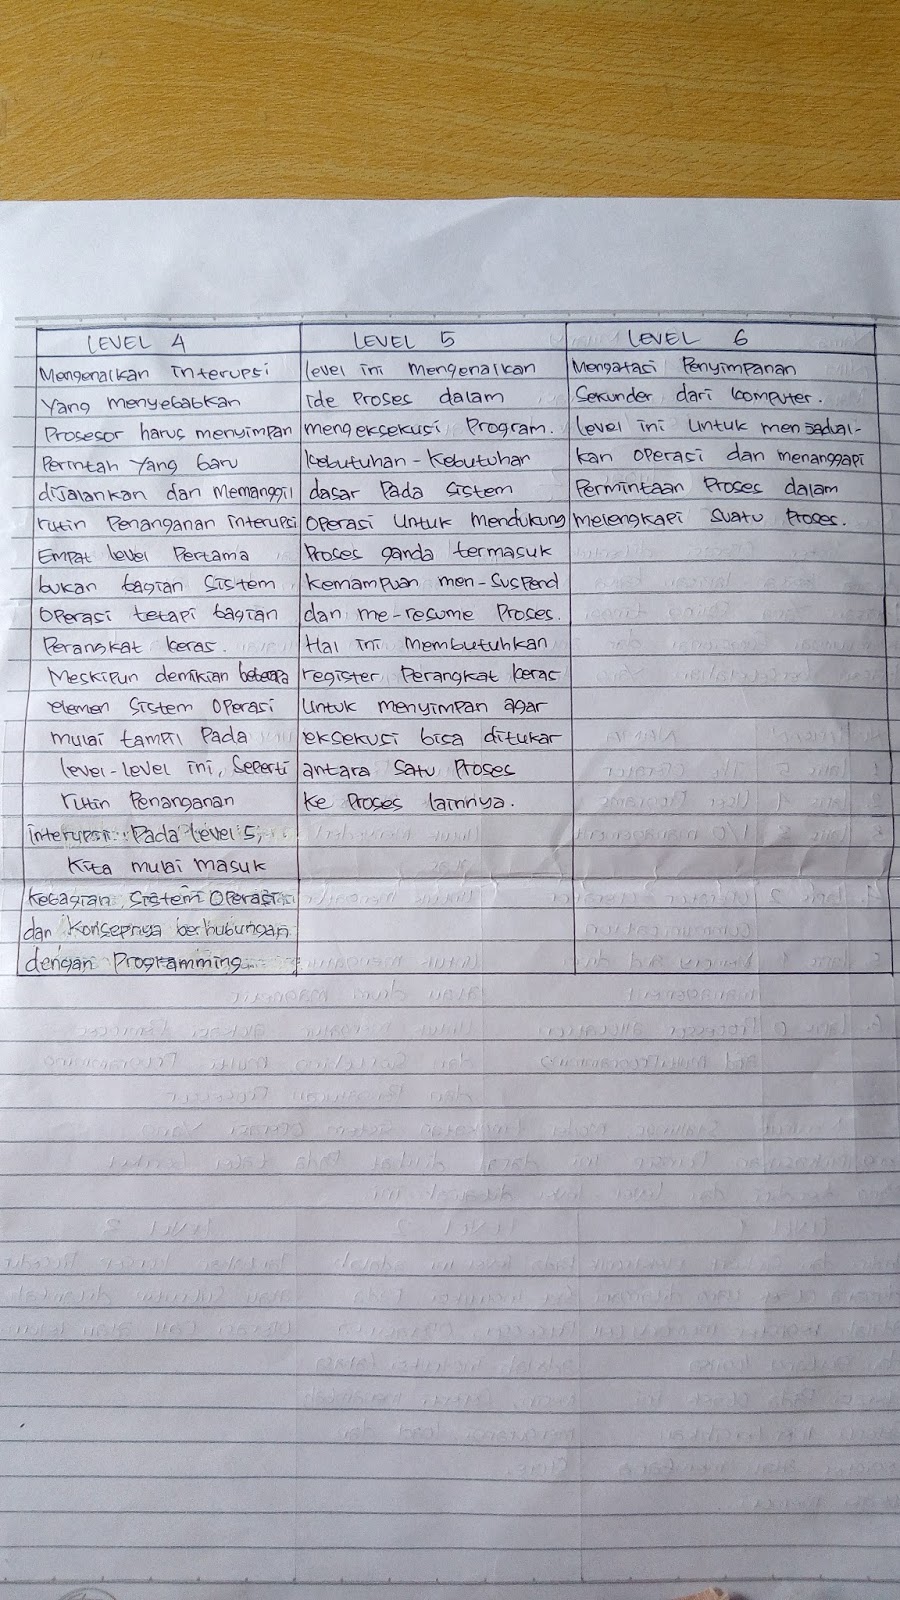 LEVEL 4
Mengenalkan interupsi
Yang menyebabkan
Prosesor harus menyimpan
Perintah yang baru
dijalankan dan Memanggil
rutin Penanganan interupsi
Empat level Pertama
bukan bagian Sistem
Operasi tetapi bagian
Perangkat keras.
Meskipun demikian beberapa
elemen Sistem Operasi
mulai tampil Pada
level-level ini, Seperti
rutin Penanganan
interupsi. Pada level 5,
Kita mulai masuk
kebagian Sistem Operasi
dan Konsepnya berhubungan
dengan Programming.
LEVEL 5
level ini mengenalkan
ide Proses dalam
mengeksekusi Program.
Kebutuhan-Kebutuhan
dasar Pada Sistem
Operasi Untuk mendukung
Proses ganda termasuk
kemampuan men-Suspend
dan me-resume Proses.
Hal ini membutuhkan
register Perangkat keras
Untuk menyimpan agar
eksekusi bisa ditukar
antara Satu Proses
ke Proses lainnya.
LEVEL 6
Mengatasi Penyimpanan
Sekunder dari Komputer.
level ini Untuk menjadual-
kan operasi dan menanggapi
Permintaan Proses dalam
melengkapi Suatu Proses.